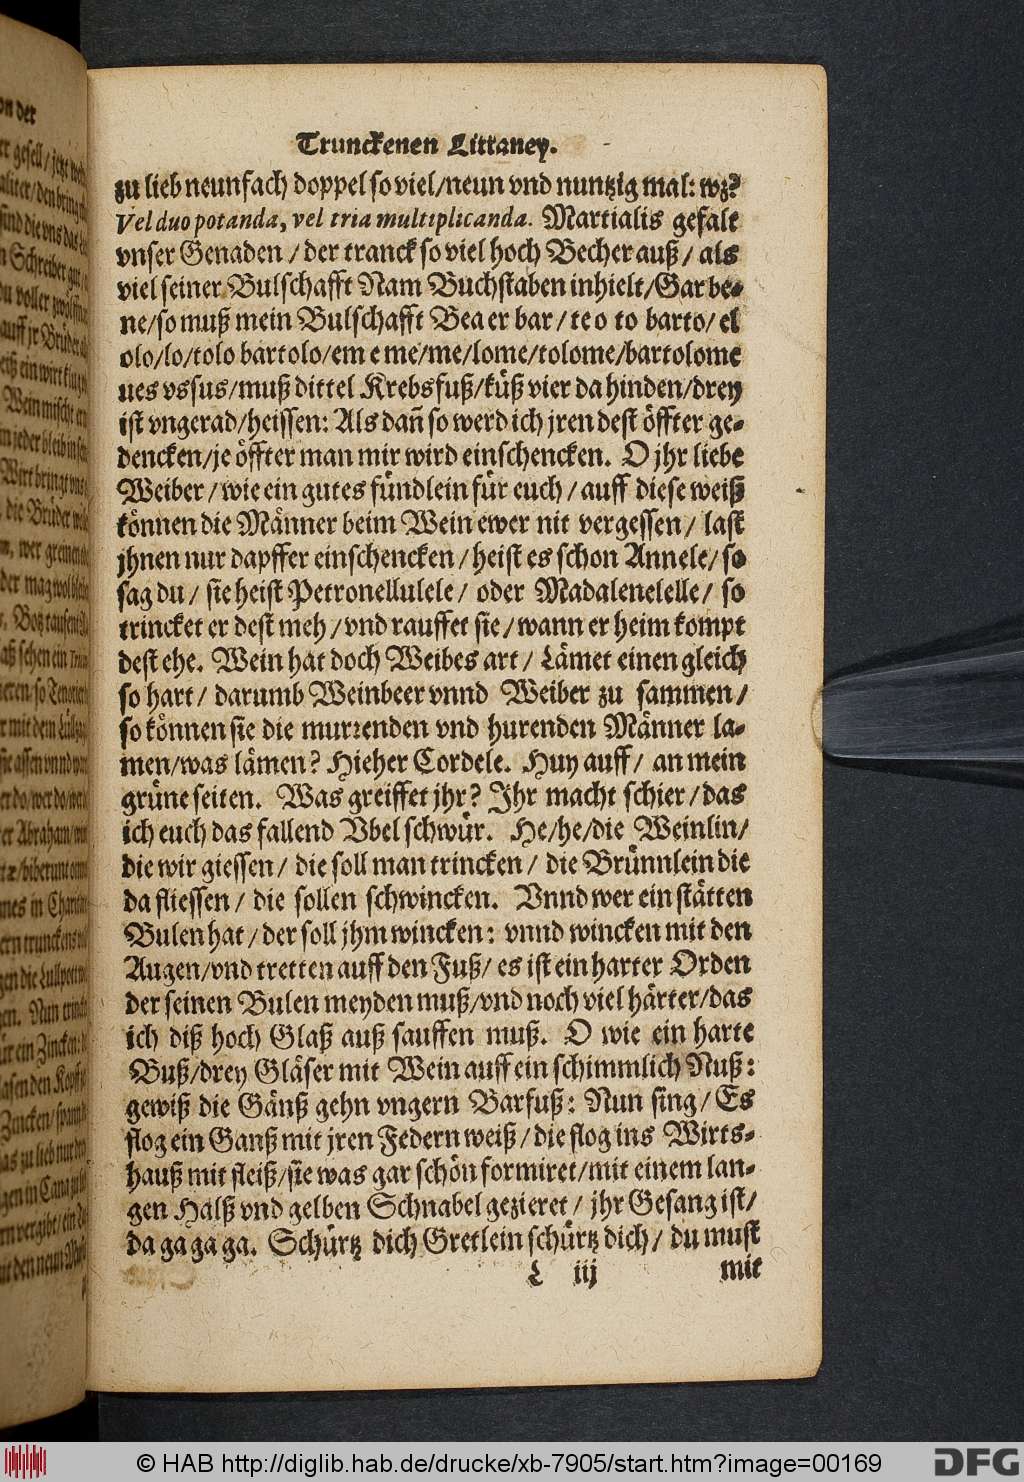 Trunckenen Littaney.
zu lieb neunfach doppel so viel/neun vnd nuntzig mal: wz?
Vel duo potanda, vel tria multiplicanda. Martialis gefalt
vnser Genaden / der tranck so viel hoch Becher auß / als
viel seiner Bulschafft Nam Buchstaben inhielt/Gar be-
ne/so muß mein Bulschafft Bea er bar / te o to barto/ el
olo/lo/tolo bartolo/em e me/me/lome/tolome/bartolome
ues vssus/muß dittel Krebsfuß/küß vier da hinden/drey
ist vngerad/heissen: Als dañ so werd ich jren dest öffter ge-
dencken/je öffter man mir wird einschencken. O jhr liebe
Weiber / wie ein gutes fündlein für euch / auff diese weiß
können die Männer beim Wein ewer nit vergessen / last
jhnen nur dapffer einschencken / heist es schon Annele/ so
sag du / sie heist Petronellulele / oder Madalenelelle / so
trincket er dest meh / vnd rauffet sie / wann er heim kompt
dest ehe. Wein hat doch Weibes art / Lämet einen gleich
so hart / darumb Weinbeer vnnd Weiber zu sammen /
so können sie die murrenden vnd hurenden Männer la-
men/was lämen? Hieher Cordele. Huy auff / an mein
grüne seiten. Was greiffet jhr? Ihr macht schier / das
ich euch das fallend Vbel schwür. He/he/die Weinlin/
die wir giessen / die soll man trincken / die Brünnlein die
da fliessen / die sollen schwincken. Vnnd wer ein stätten
Bulen hat / der soll jhm wincken: vnnd wincken mit den
Augen/vnd tretten auff den Fuß/ es ist ein harter Orden
der seinen Bulen meyden muß/vnd noch viel härter/das
ich diß hoch Glaß auß sauffen muß. O wie ein harte
Buß/drey Gläser mit Wein auff ein schimmlich Nuß:
gewiß die Gänß gehn vngern Barfuß: Nun sing / Es
flog ein Ganß mit jren Federn weiß / die flog ins Wirts-
hauß mit fleiß/sie was gar schön formiret/mit einem lan-
gen Halß vnd gelben Schnabel gezieret / jhr Gesang ist/
da ga ga ga. Schürtz dich Gretlein schürtz dich / du must
L iij mit
© HAB http://diglib.hab.de/drucke/xb-7905/start.htm?image=00169
DFG